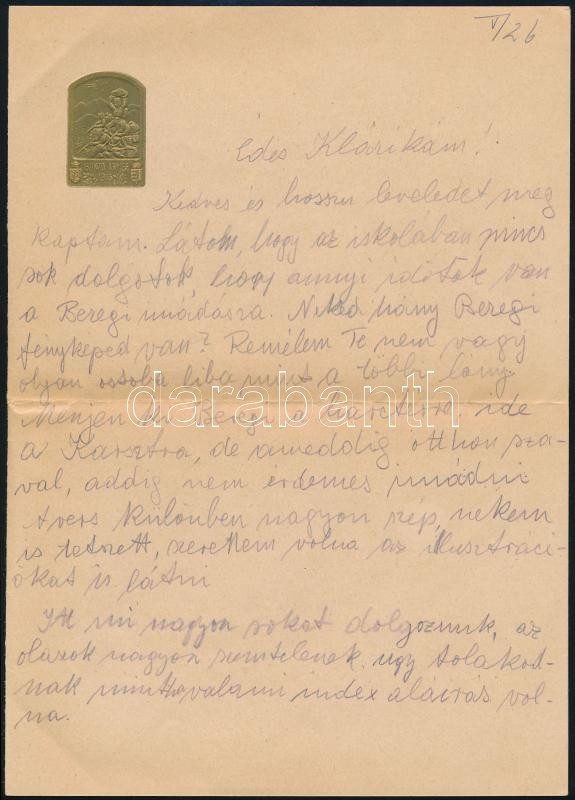 V/26
Édes Klárikám!
Kedves és hosszu leveledet meg
kaptam. Látom, hogy az iskolában nincs
sok dolgotok, hogy annyi időtök van
a Beregi imádásra. Neked hány Beregi
fényképed van? Remélem Te nem vagy
olyan ostoba liba mint a többi lány.
Menjen ki Beregi a harctérre ide
a Karsztra, de ameddig otthon sza-
val, addig nem érdemes imádni
A vers különben nagyon szép, nekem
is tetszett, szerettem volna az illusztráci-
ókat is látni
Itt mi nagyon sokat dolgozunk, az
olaszok nagyon szemtelenek úgy tolakod-
nak mintha valami index aláírás vol-
na.
darabanth